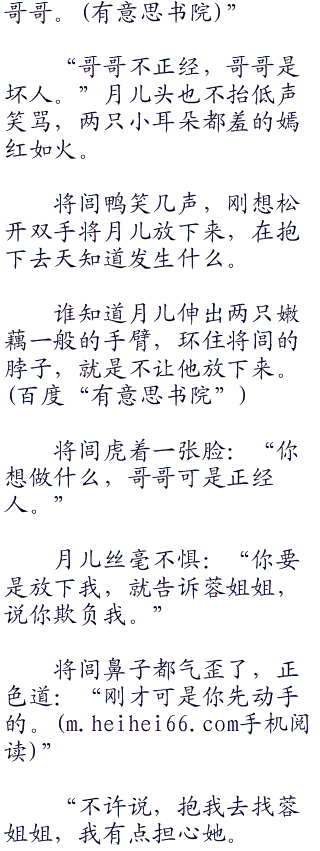 哥哥。(有意思书院)”
“哥哥不正经，哥哥是
坏人。”月儿头也不抬低声
笑骂，两只小耳朵都羞的嫣
红如火。
将闾鸭笑几声，刚想松
开双手将月儿放下来，在抱
下去天知道发生什么。
谁知道月儿伸出两只嫩
藕一般的手臂，环住将闾的
脖子，就是不让他放下来。
(百度“有意思书院”)
将闾虎着一张脸：“你
想做什么，哥哥可是正经
人。”
月儿丝毫不惧：“你要
是放下我，就告诉蓉姐姐，
说你欺负我。”
将闾鼻子都气歪了，正
色道：“刚才可是你先动手
的。(m.heihei66.com手机阅
读)”
“不许说，抱我去找蓉
姐姐，我有点担心她。